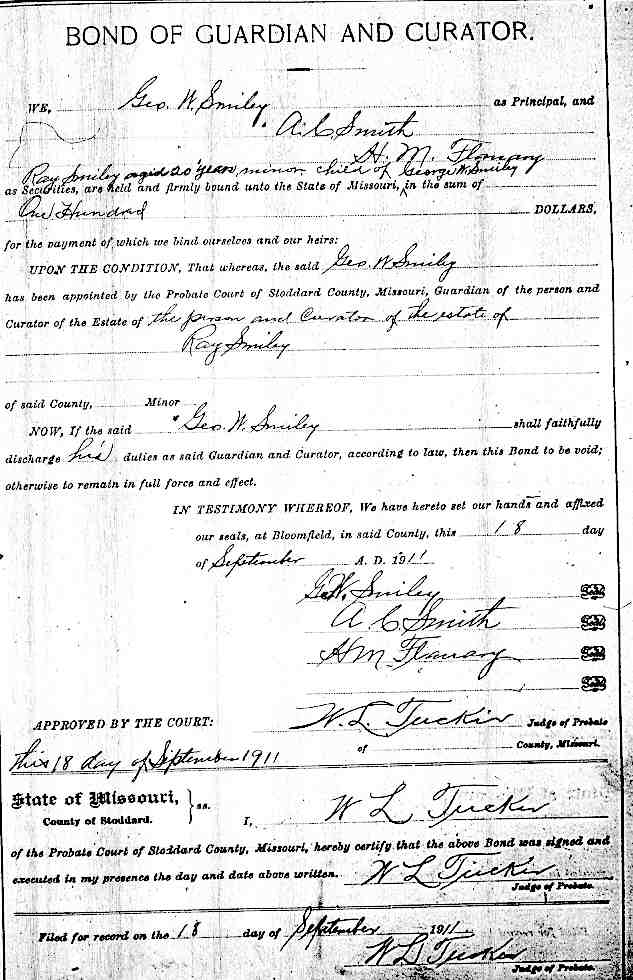 BOND OF GUARDIAN AND CURATOR.
WE, Geo. W. Smiley as Principal, and
A. C. Smith
H. M. Flanary
Ray Smiley aged 20 years, minor child of George W. Smiley
as Securities, are held and firmly bound unto the State of Missouri, in the sum of
One Hundred DOLLARS,
for the payment of which we bind ourselves and our heirs:
UPON THE CONDITION, That whereas, the said Geo. W Smiley
has been appointed by the Probate Court of Stoddard County, Missouri, Guardian of the person and
Curator of the Estate of the person and Curator of the estate of
Ray Smiley
of said County, Minor
NOW, If the said Geo. W. Smiley shall faithfully
discharge his duties as said Guardian and Curator, according to law, then this Bond to be void;
otherwise to remain in full force and effect.
IN TESTIMONY WHEREOF, We have hereto set our hands and affixed
our seals, at Bloomfield, in said County, this 18 day
of September A. D. 1911
G. W. Smiley Seal
A C Smith Seal
H M Flanary Seal
Seal
APPROVED BY THE COURT: W. L. Tucker Judge of Probate
of County, Missouri.
This 18 day of September 1911
State of Missouri, } ss.
County of Stoddard. I, W L Tucker
of the Probate Court of Stoddard County, Missouri, hereby certify that the above Bond was signed and
executed in my presence the day and date above written. W L Tucker
Judge of Probate.
Filed for record on the 18 day of September 1911
W L Tucker
Judge of Probate.